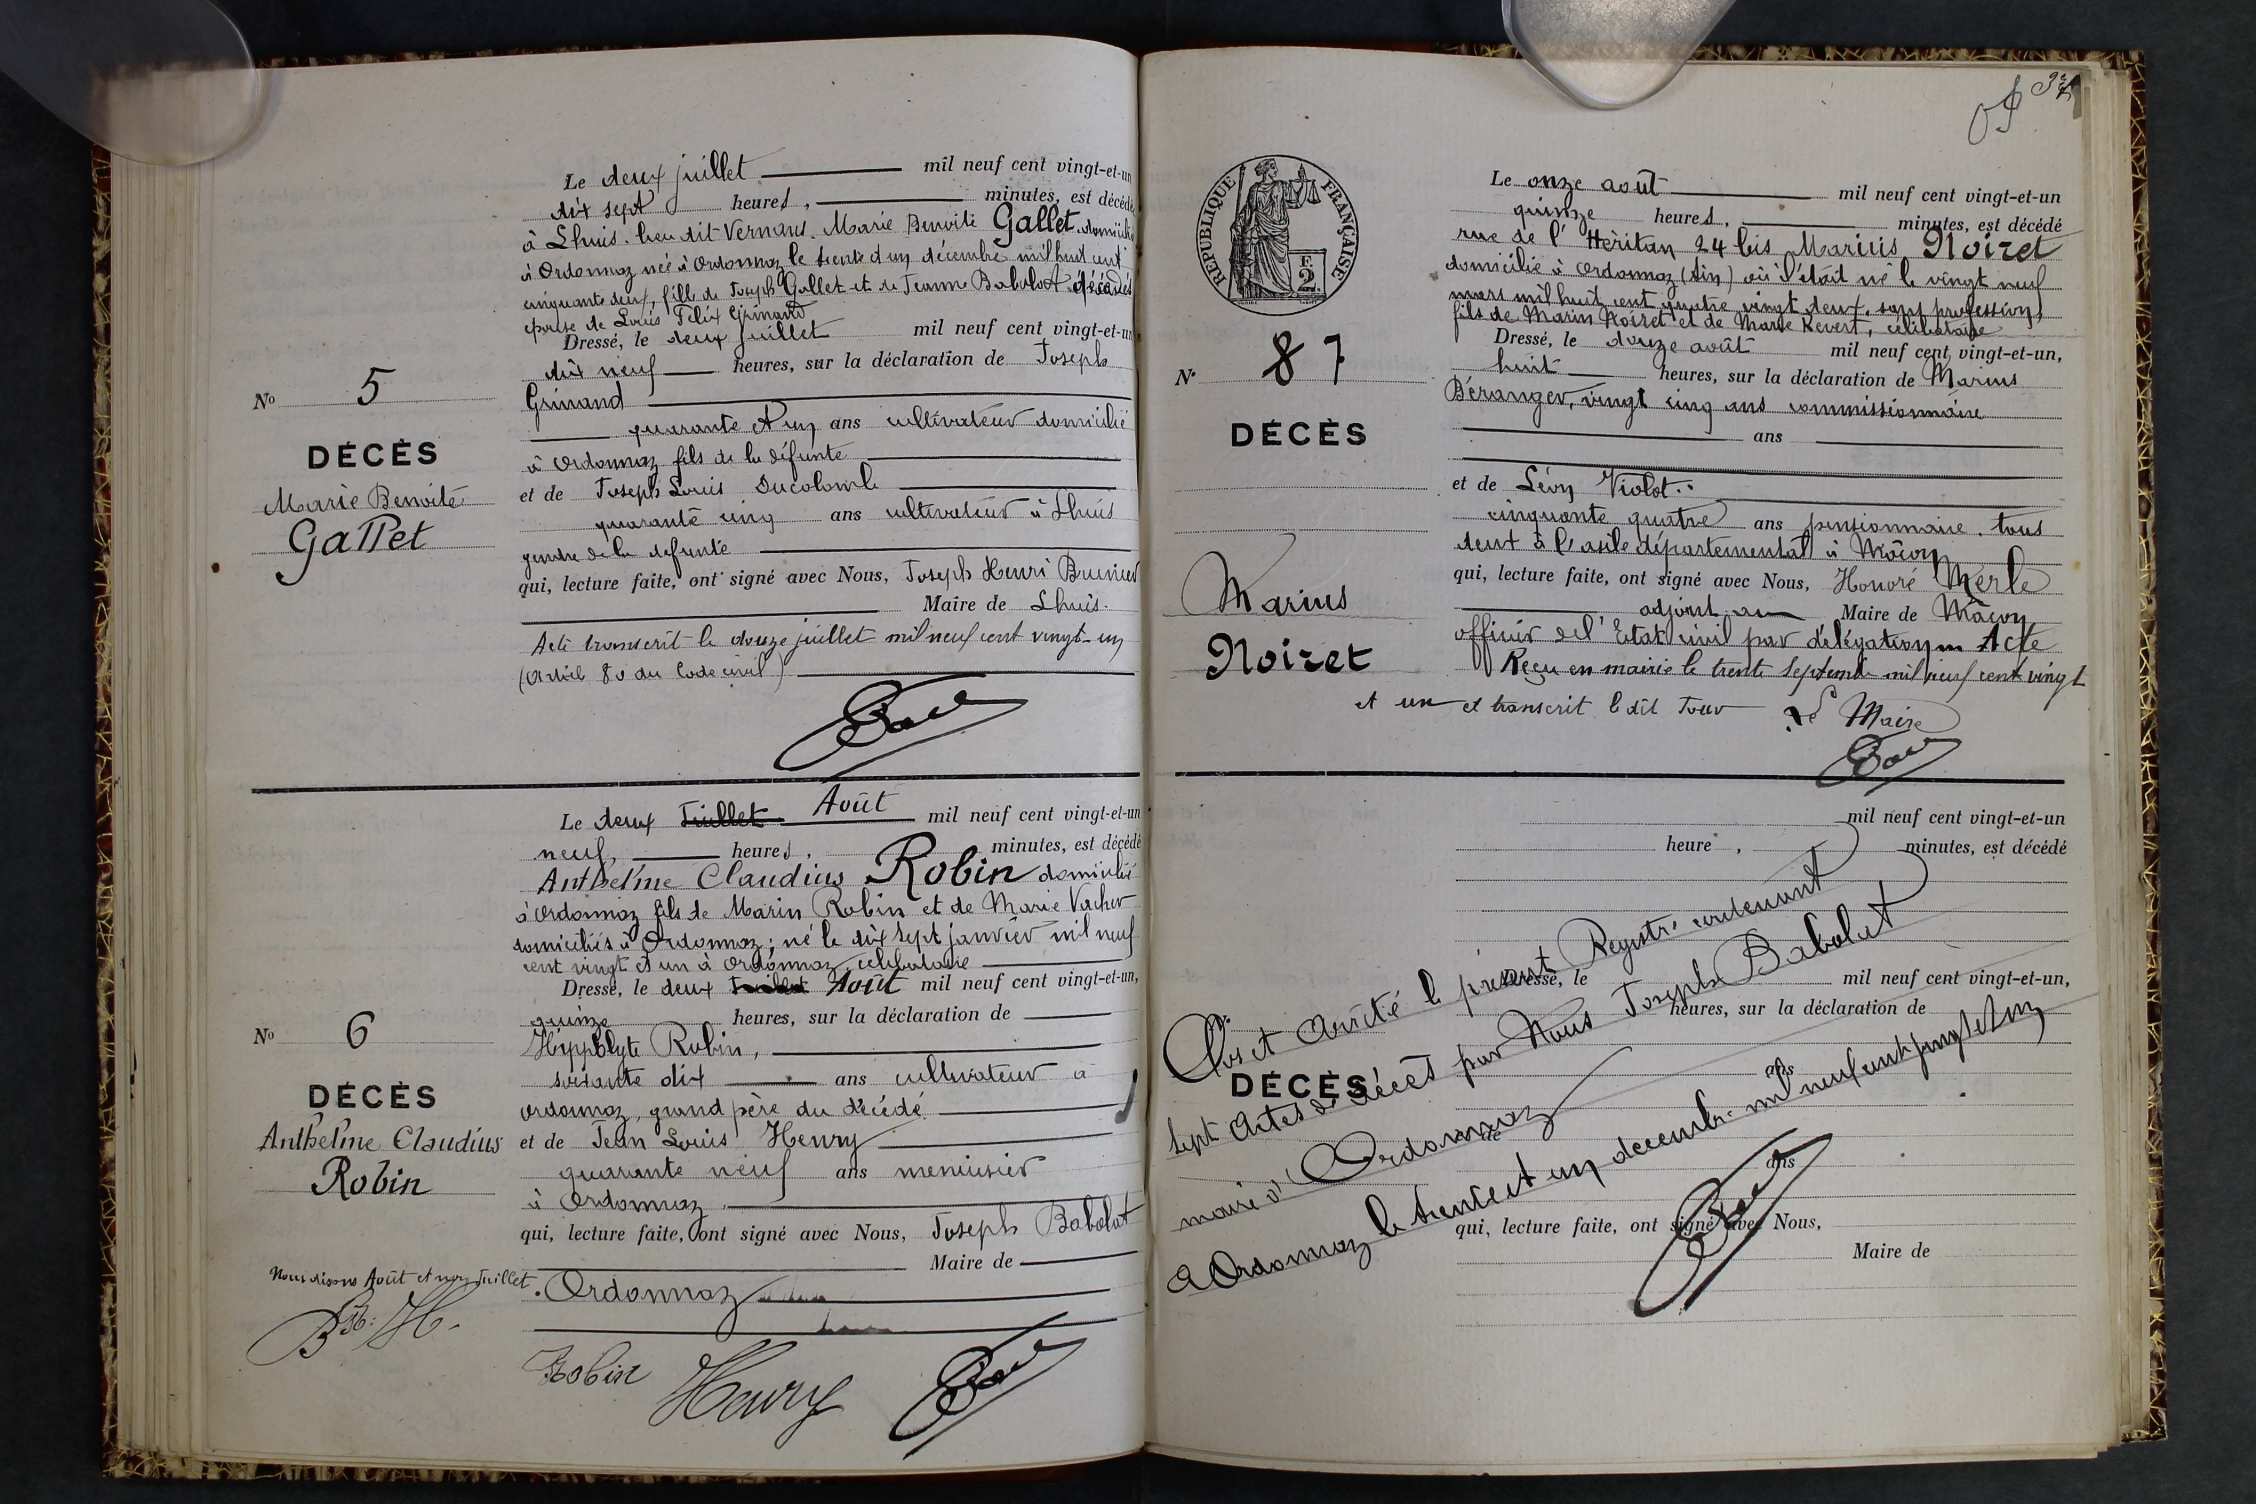 Le deux juillet mil neuf cent vingt-et-un
dix sept heures, minutes, est décédée
à Lhuis. lieu dit Vernans. Marie Benoite Gallet domiciliée
à Ordonnaz née à Ordonnaz le trente et un décembre mil huit cent
cinquante deux, fille de Joseph Gallet et de Jeanne Babolat décédés
épouse de Louis Félix Grinand
Dressé, le deux juillet mil neuf cent vingt-et-un
dix neuf heures, sur la déclaration de Joseph
Grinand
quarante et un ans cultivateur domicilié
à Ordonnaz fils de la défunte
et de Joseph Louis Ducolomb
quarante cinq ans cultivateur à Lhuis
gendre de la defunte
qui, lecture faite, ont signé avec Nous, Joseph Henri Brunier
Maire de Lhuis.
Acte transcrit le douze juillet mil neuf cent vingt-un
(Article 80 du Code civil)
No 5
DÉCÈS
Marie Benoite
Gallet
Le deux Juillet Août mil neuf cent vingt-et-un
neuf, heures, minutes, est décédé
Anthelme Claudius Robin domicilié
à Ordonnaz fils de Marin Robin et de Marie Vacher
domiciliés à Ordonnaz; né le dix sept janvier mil neuf
cent vingt et un à Ordonnaz, célibataire
Dressé, le deux Juillet Août mil neuf cent vingt-et-un,
quinze heures, sur la déclaration de
Hyppolyte Robin,
soixante dix ans cultivateur à
Ordonnaz, grand père du décédé
et de Jean Louis Henry
quarante neuf ans menuisier
à Ordonnaz,
qui, lecture faite, ont signé avec Nous, Joseph Babolat
Maire de
Ordonnaz
No 6
DÉCÈS
Anthelme Claudius
Robin
Nous disons Août et non Juillet.
Robin Henry
RÉPUBLIQUE FRANÇAISE
F.
2
Le onze août mil neuf cent vingt-et-un
quinze heures, minutes, est décédé
rue de l'Héritan 24 bis Marius Noiret
domicilié à Ordonnaz (Ain) où il était né le vingt neuf
mars mil huit cent quatre vingt deux, sans profession,
fils de Marin Noiret et de Marie Revert, célibataire
Dressé, le douze août mil neuf cent vingt-et-un,
huit heures, sur la déclaration de Marius
Béranger, vingt cinq ans commissionnaire
ans
et de Lévy Violot
cinquante quatre ans pensionnaire. tous
deux à l'asile départemental à Mâcon
qui, lecture faite, ont signé avec Nous, Honoré Merle
adjoint au Maire de Mâcon
officier de l'Etat civil par délégation Acte
Reçu en mairie le trente septembre mil neuf cent vingt
et un et transcrit le dit Jour Le Maire
No 87
DÉCÈS
Marius
Noiret
mil neuf cent vingt-et-un
heure, minutes, est décédé
Dressé, le mil neuf cent vingt-et-un,
heures, sur la déclaration de
ans
DÉCÈS
et de
ans
qui, lecture faite, ont signé avec Nous,
Maire de
Clos et Arrêté le présent Registre contenant
sept Actes de décès par Nous Joseph Babolat
maire d'Ordonnaz
A Ordonnaz le trente et un décembre mil neuf cent vingt et un